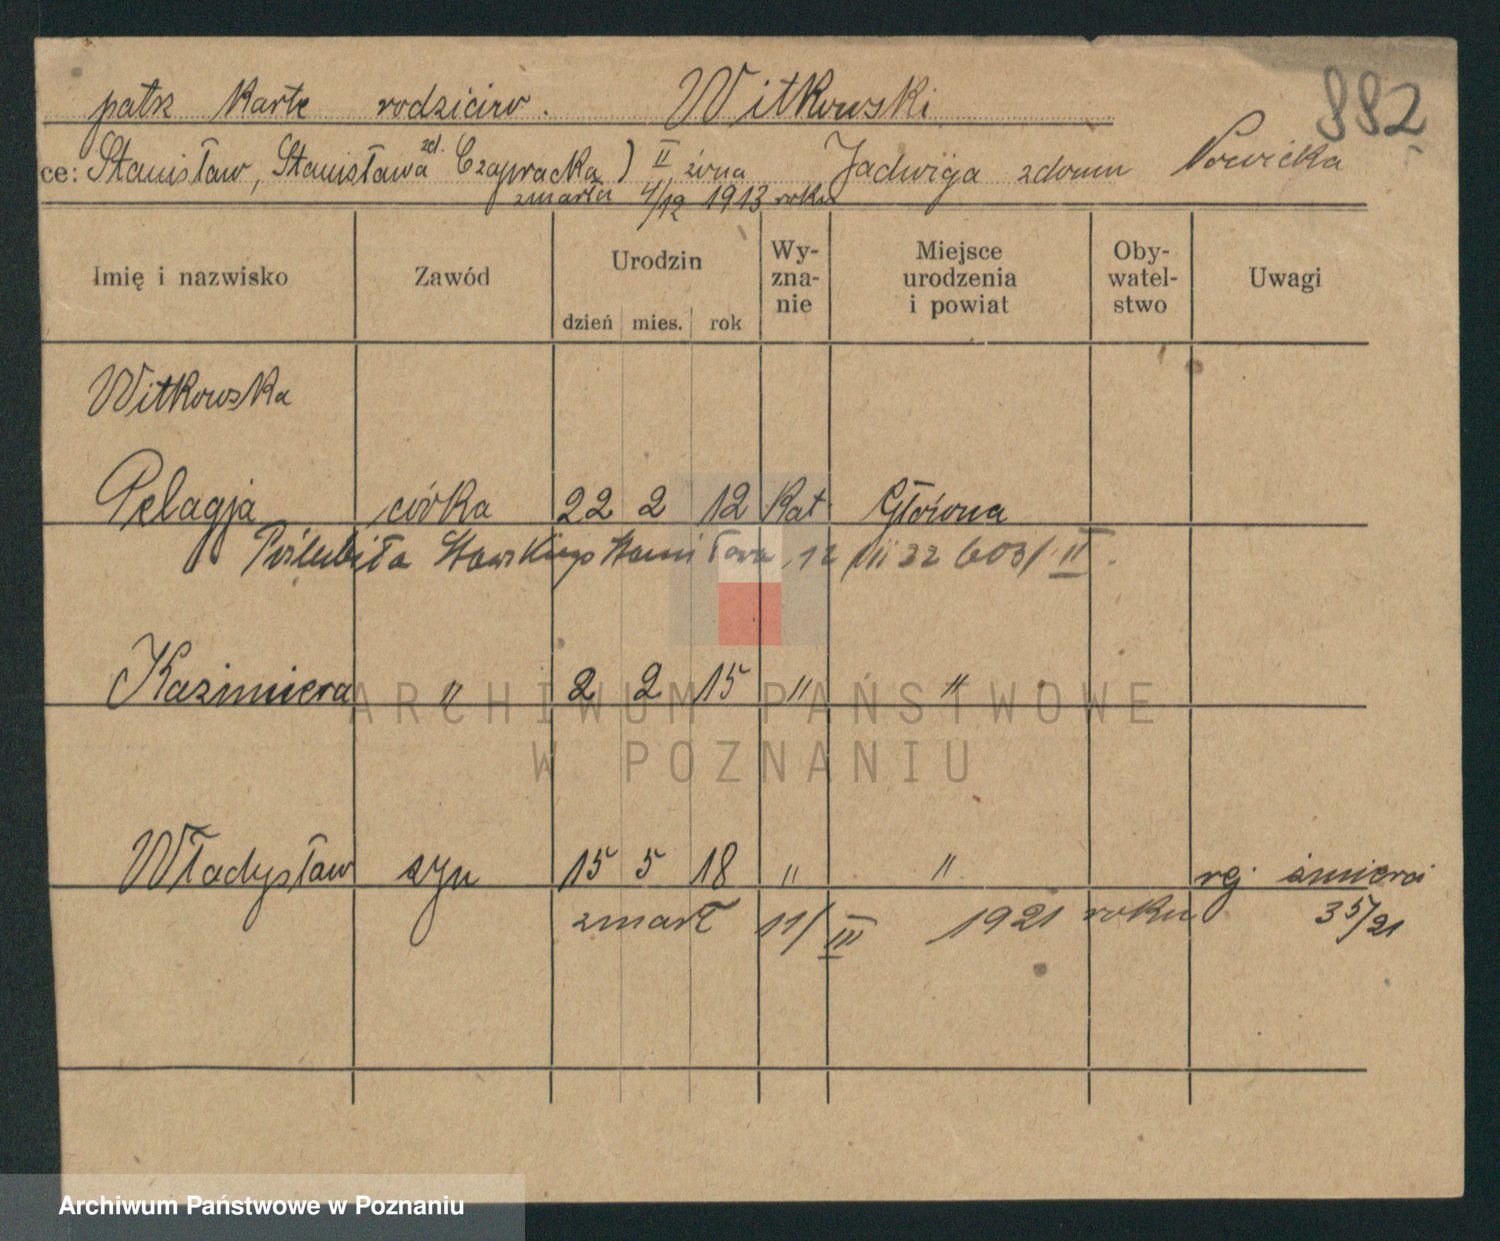 patrz kartę rodziców. Witkowski 882
ce: Stanisław, Stanisława zd. Czapracka) II żona Jadwiga zdomu Nowicka
zmarła 4/12 1913 roku
Imię i nazwisko Zawód Urodzin dzień mies. rok Wy-zna-nie Miejsce urodzenia i powiat Oby-watel-stwo Uwagi
Witkowska
Pelagja córka 22 2 12 Kat Główna
Poślubiła Stanisława 12 VII 32 603/II.
Kazimiera " 2 2 15 " "
ARCHIWUM PAŃSTWOWE
W POZNANIU
Władysław syn 15 5 18 " " rej śmierci
zmarł 11/III 1921 roku 35/21
Archiwum Państwowe w Poznaniu